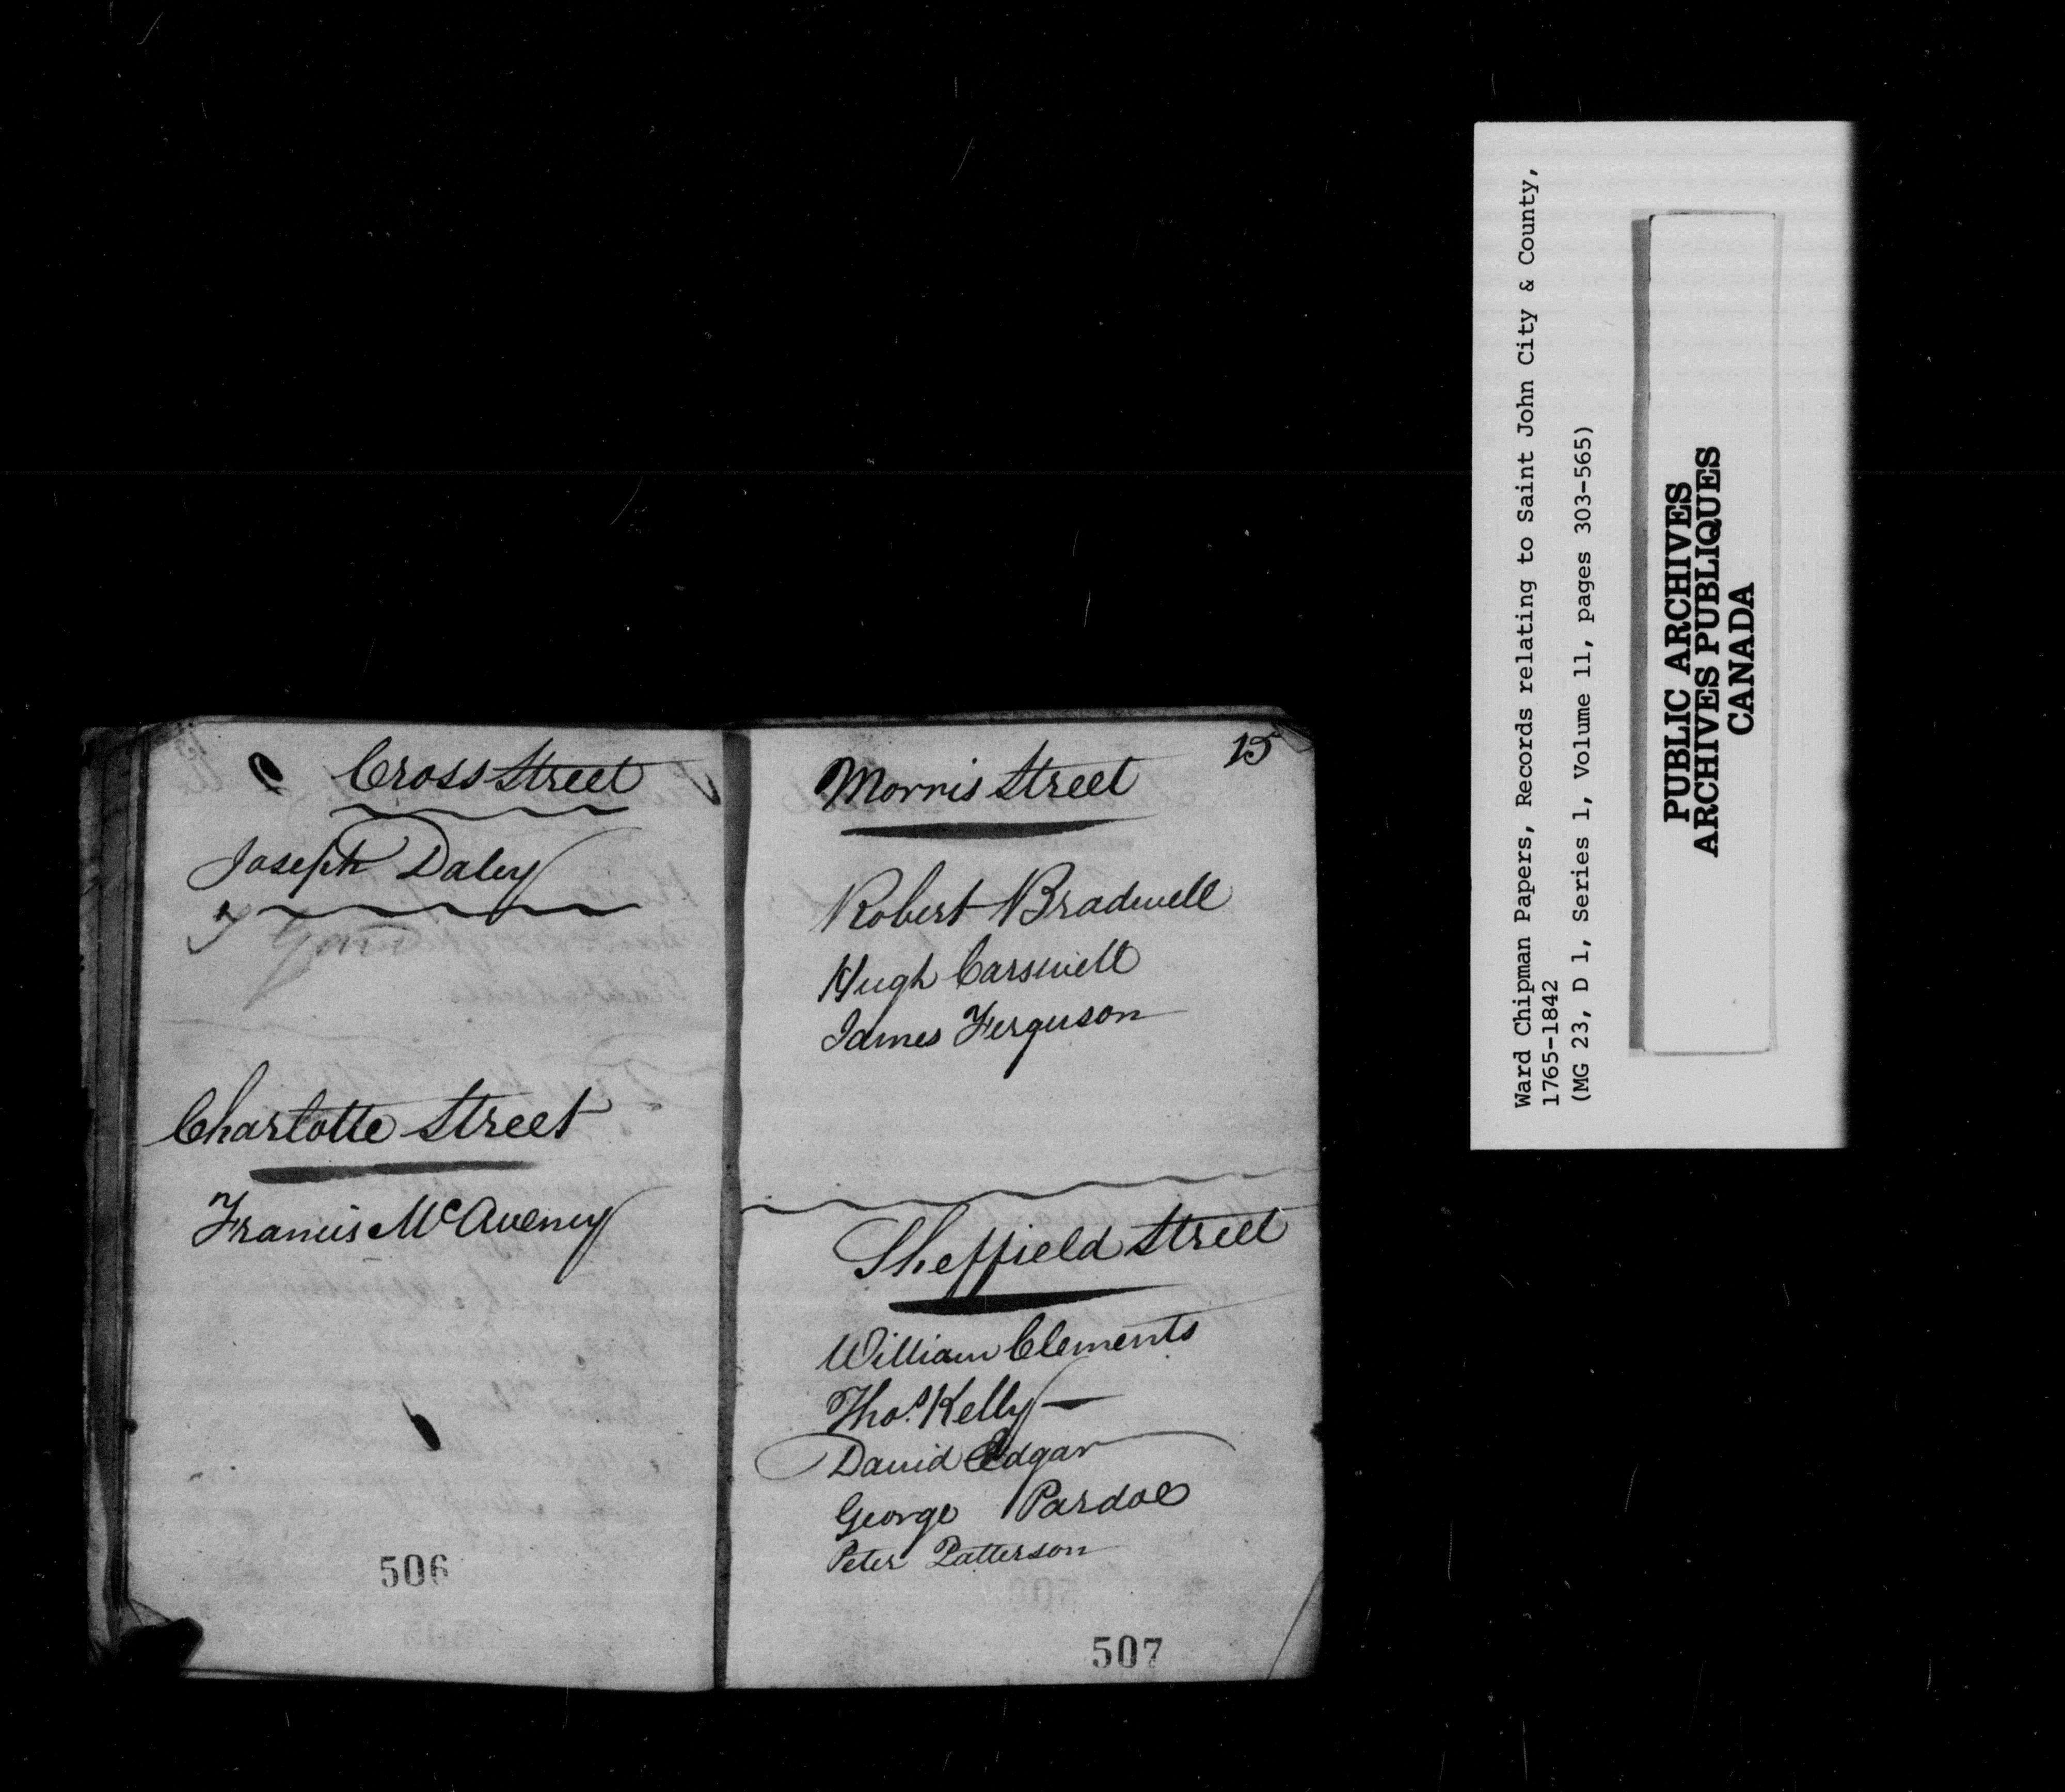 Cross Street
Joseph Daley
Charlotte Street
Francis McAveney
506
15
Morris Street
Robert Bradwell
Hugh Carswell
James Ferguson
Sheffield Street
William Clements
Thos. Kelly
David Edgar
George Pardoe
Peter Patterson
507
Ward Chipman Papers, Records relating to Saint John City & County,
1765-1842
(MG 23, D 1, Series 1, Volume 11, pages 303-565)
PUBLIC ARCHIVES
ARCHIVES PUBLIQUES
CANADA